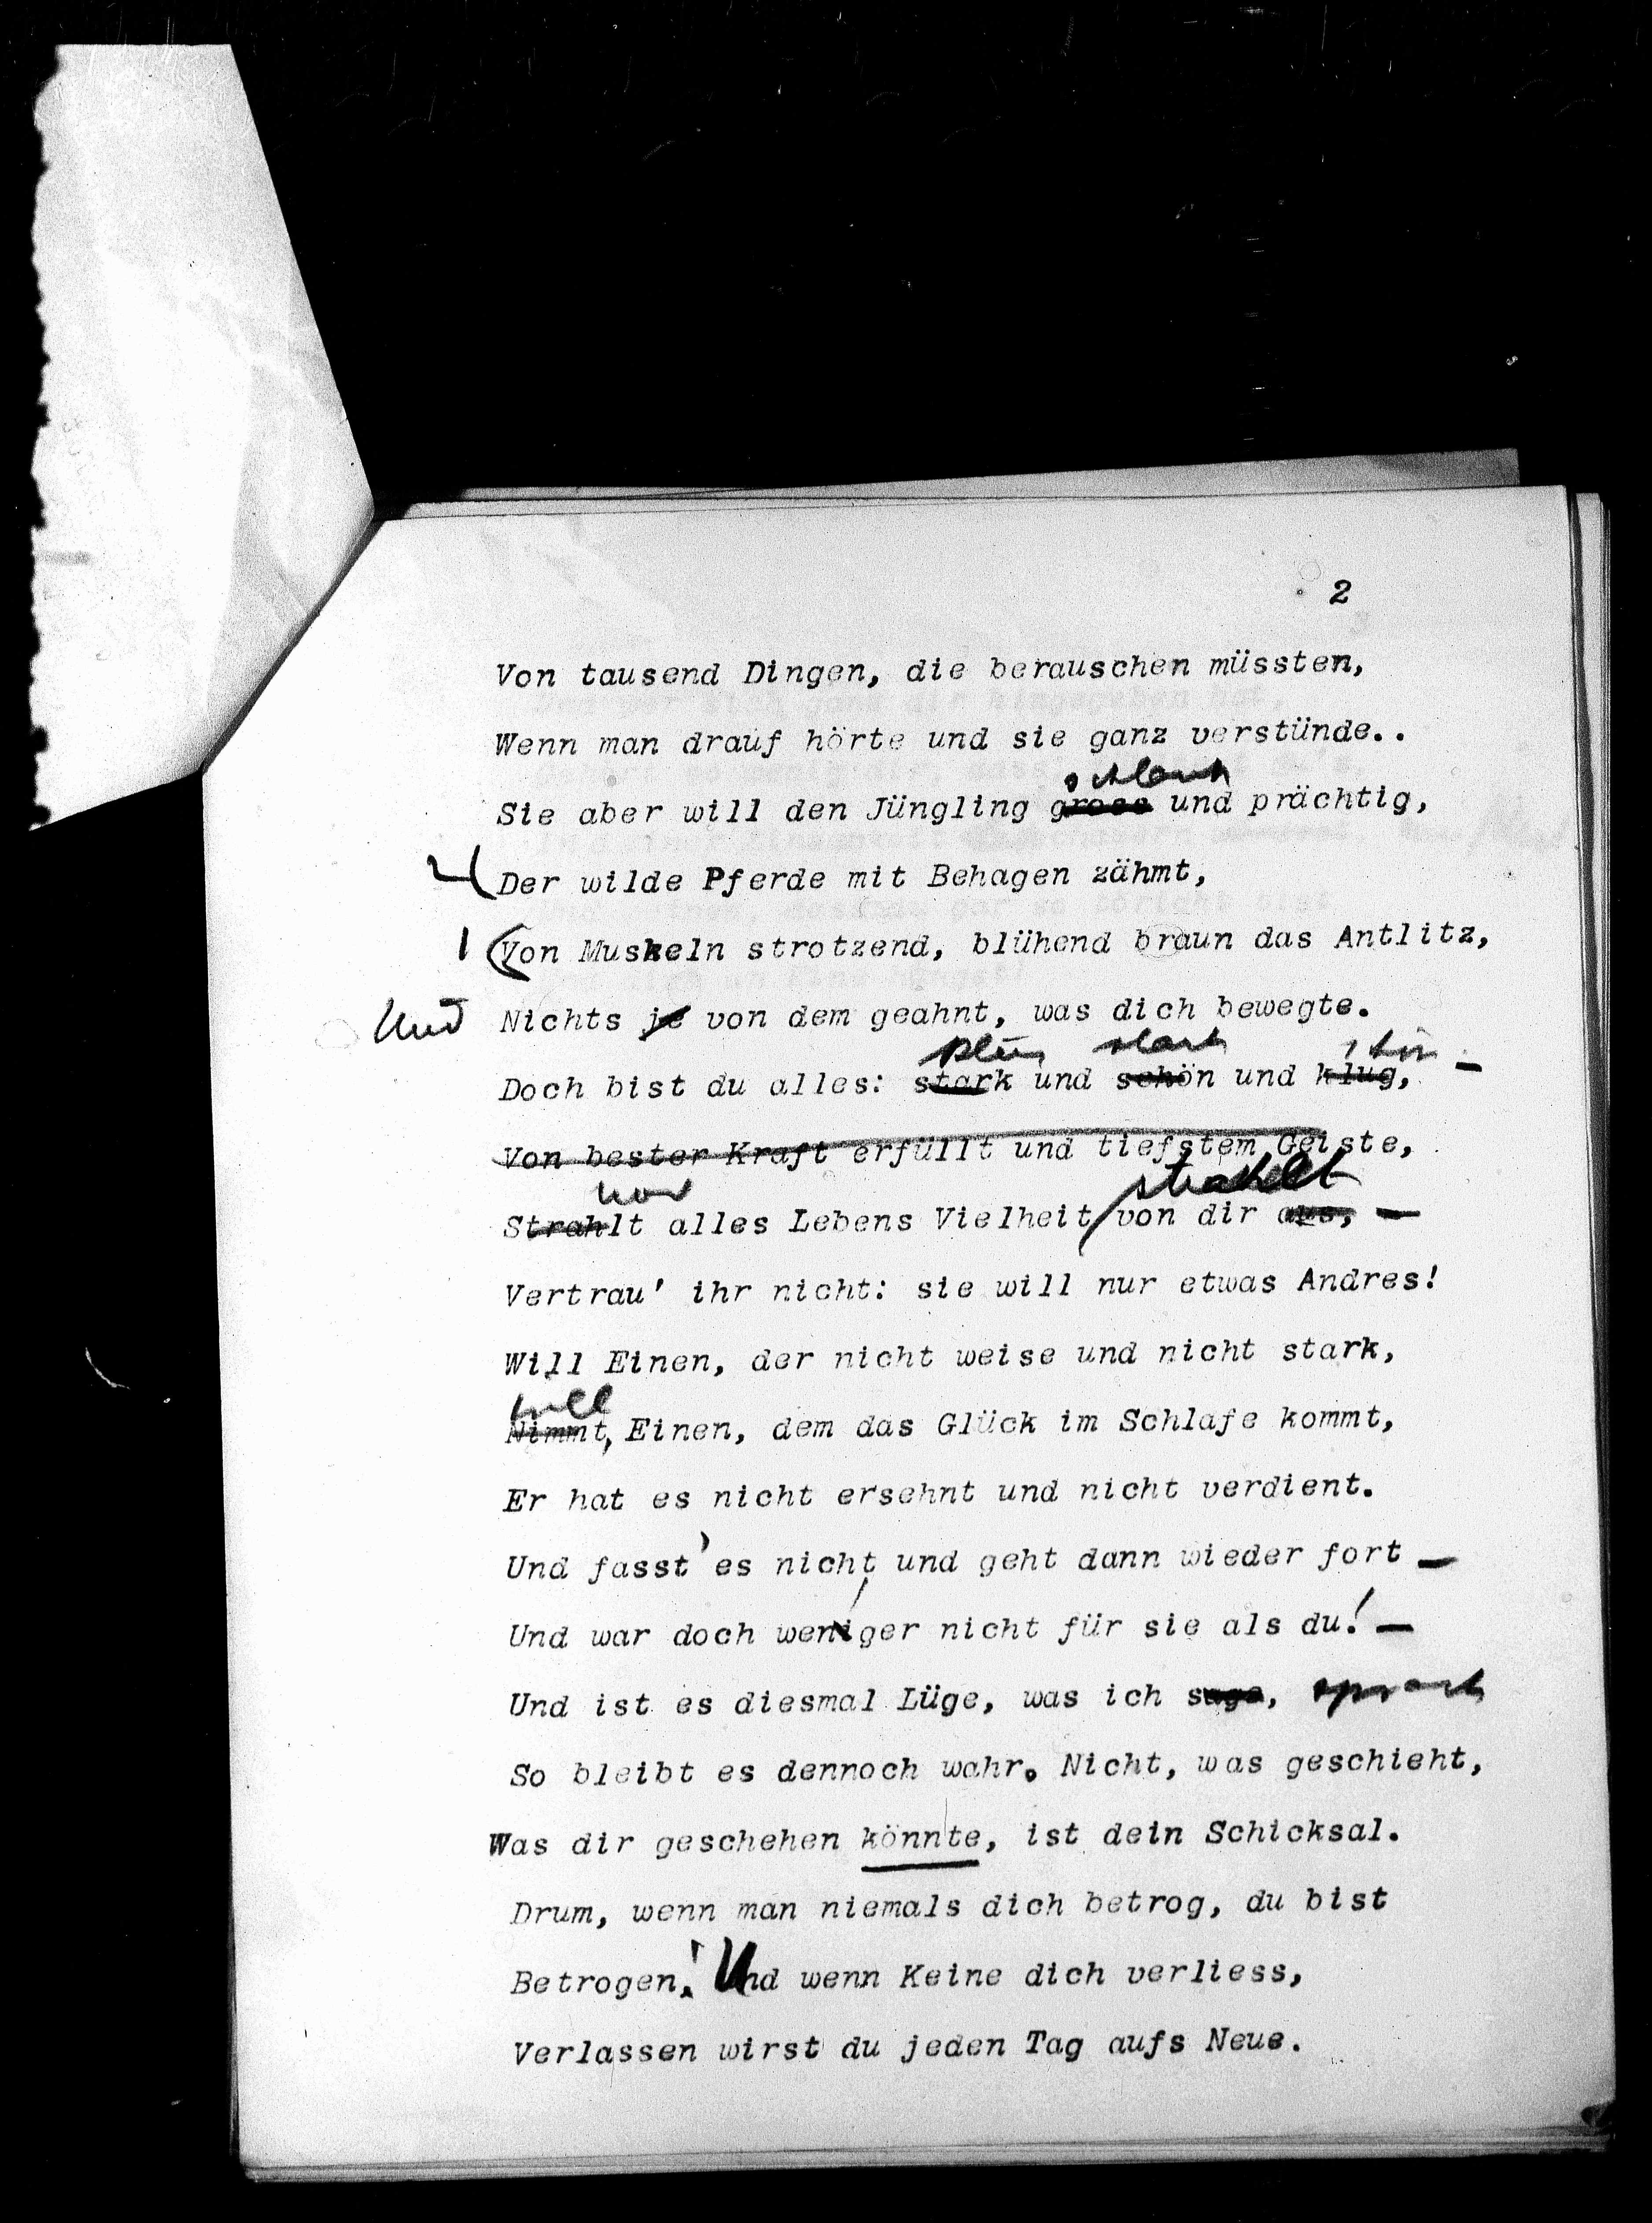 2
Von tausend Dingen, die berauschen müssten,
Wenn man drauf hörte und sie ganz verstünde..
schlank
Sie aber will den Jüngling gross und prächtig,
2 Der wilde Pferde mit Behagen zähmt,
1 Von Muskeln strotzend, blühend braun das Antlitz,
Und Nichts je von dem geahnt, was dich bewegte.
klug stark schön
Doch bist du alles: stark und schön und klug, —
Von bester Kraft erfüllt und tiefstem Geiste,
und strahlt
Strahlt alles Lebens Vielheit von dir aus, —
Vertrau' ihr nicht: sie will nur etwas Andres!
Will Einen, der nicht weise und nicht stark,
will
Nimmt, Einen, dem das Glück im Schlafe kommt,
Er hat es nicht ersehnt und nicht verdient.
Und fasst' es nicht und geht dann wieder fort —
Und war doch weniger nicht für sie als du! —
Und ist es diesmal Lüge, was ich sage, sprach
So bleibt es dennoch wahr. Nicht, was geschieht,
Was dir geschehen könnte, ist dein Schicksal.
Drum, wenn man niemals dich betrog, du bist
Betrogen! Und wenn Keine dich verliess,
Verlassen wirst du jeden Tag aufs Neue.